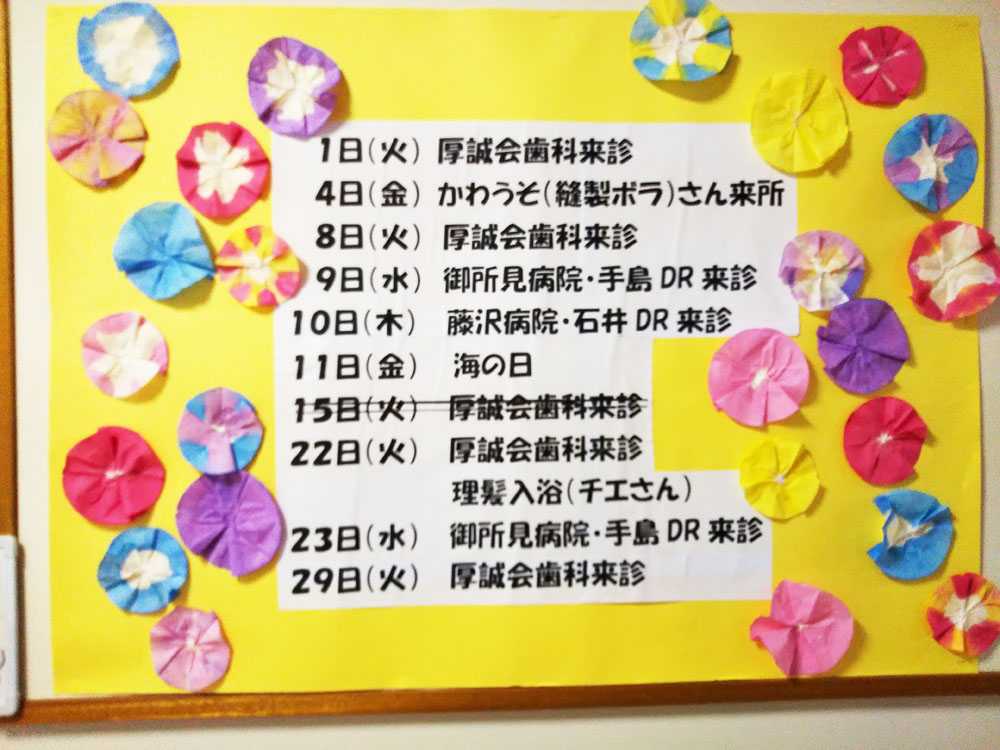 1日(火) 厚誠会歯科来診
4日(金) かわうそ(縫製ボラ)さん来所
8日(火) 厚誠会歯科来診
9日(水) 御所見病院・手島DR来診
10日(木) 藤沢病院・石井DR来診
11日(金) 海の日
15日(火) 厚誠会歯科来診
22日(火) 厚誠会歯科来診
理髪入浴(チエさん)
23日(水) 御所見病院・手島DR来診
29日(火) 厚誠会歯科来診